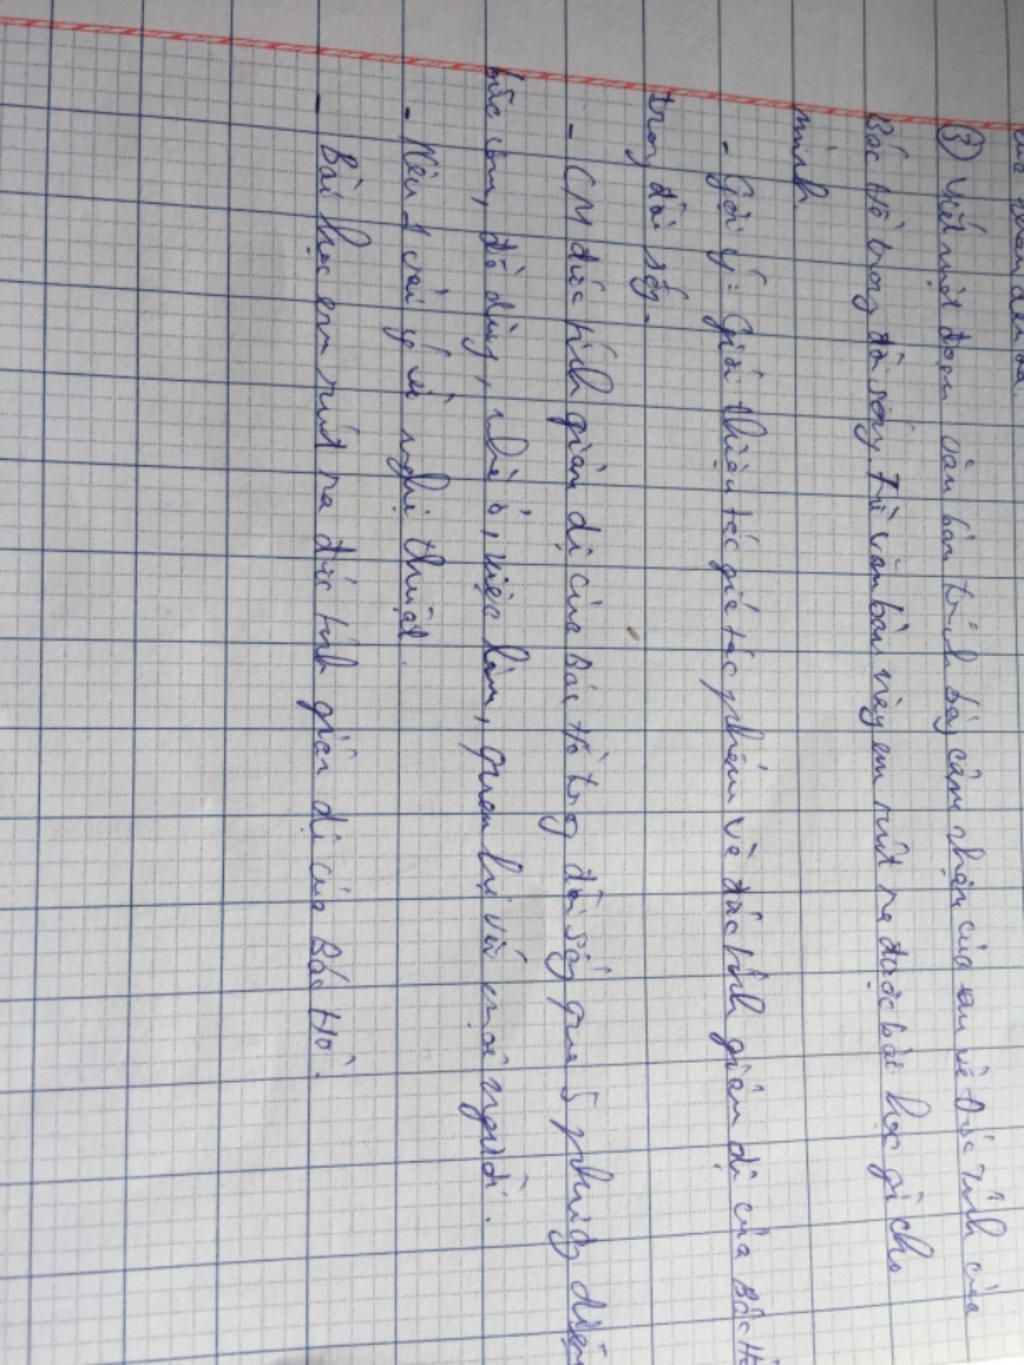 ③ Viết một đoạn văn bản trình bày cảm nhận của em về Đức Tính của
Bác Hồ trong đời sống. Từ văn bản này em rút ra được bài học gì cho
mình.
- Gợi ý: Giới thiệu tác giả tác phẩm và đức tính giản dị của Bác Hồ
trong đời sống.
- CM đức tính giản dị của Bác Hồ trong đời sống qua 5 phương diện
bữa cơm, đồ dùng, nhà ở, việc làm, quan hệ với mọi người.
- Nêu 1 vài ý về nghị thuật.
- Bài học em rút ra đức tính giản dị của Bác Hồ.